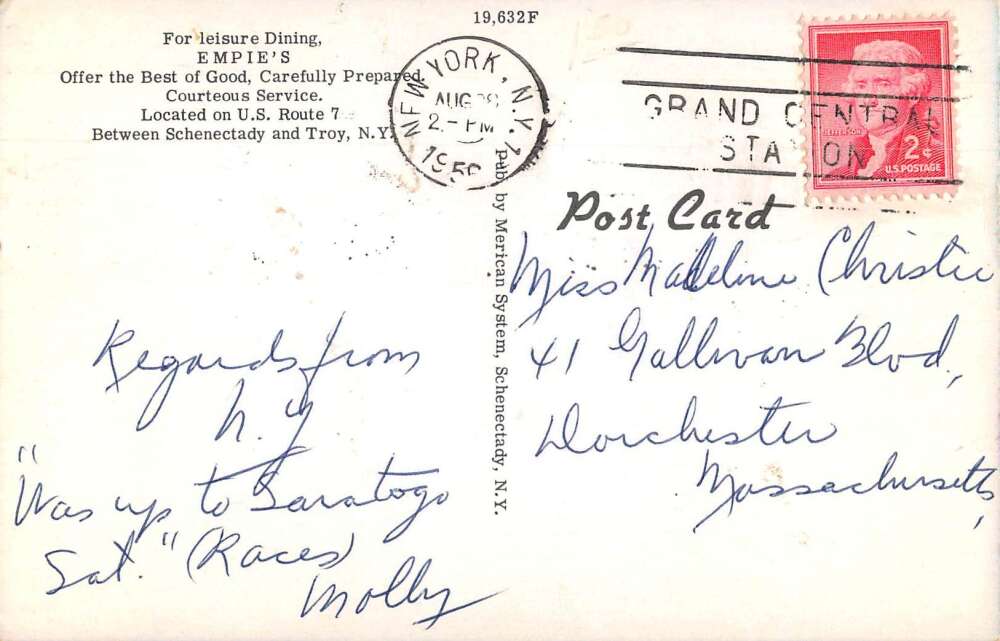 19,632F
For leisure Dining,
EMPIE'S
Offer the Best of Good, Carefully Prepared
Courteous Service.
Located on U.S. Route 7
Between Schenectady and Troy, N.Y.
NEW YORK, N.Y.
AUG
PM
GRAND CENTRAL
STATION
JEFFERSON
2¢
U.S. POSTAGE
Post Card
Pub by Merican System, Schenectady, N.Y.
Regards from
N.Y
"Was up to Saratoga
Sat." (Races)
Molly
Miss Madeline Christie
41 Gallivan Blvd,
Dorchester
Massachusetts,